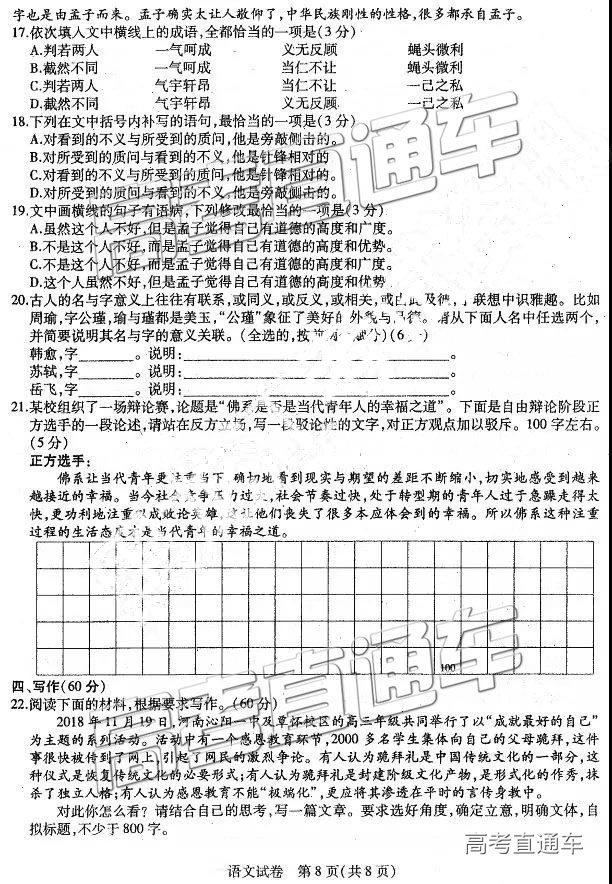 字也是由孟子而来。孟子确实太让人敬仰了,中华民族刚性的性格,很多都承自孟子。
17.依次填入文中横线上的成语,全都恰当的一项是(3分)
A.判若两人 一气呵成 义无反顾 蝇头微利
B.截然不同 一气呵成 当仁不让 蝇头微利
C.判若两人 气宇轩昂 当仁不让 一己之私
D.截然不同 气宇轩昂 义无反顾 一己之私
18.下列在文中括号内补写的语句,最恰当的一项是(3分)
A.对看到的不义与所受到的质问,他是旁敲侧击的。
B.对所受到的质问与看到的不义,他是针锋相对的
C.对看到的不义与所受到的质问,他是针锋相对的。
D.对所受到的质问与看到的不义,他是旁敲侧击的。
19.文中画横线的句子有语病,下列修改最恰当的一项是(3分)
A.虽然这个人不好,但是孟子觉得自己有道德的高度和广度。
B.不是这个人不好,而是孟子觉得自己有道德的高度和优势。
C.不是这个人不好,而是孟子觉得自己有道德的高度和广度。
D.这个人虽然不好,但是孟子觉得自己有道德的高度和优势
20.古人的名与字意义上往往有联系,或同义,或反义,或相关,或由此及彼,联想中识雅趣。比如
周瑜,字公瑾,瑜与瑾都是美玉,“公瑾”象征了美好的外貌与品德。请从下面人名中任选两个,
并简要说明其名与字的意义关联。(全选的,按前 分)(6分)
韩愈,字______。说明:______。
苏轼,字______。说明:______。
岳飞,字______。说明:______。
21.某校组织了一场辩论赛,论题是“佛系是否是当代青年人的幸福之道”。下面是自由辩论阶段正
方选手的一段论述,请站在反方立场,写一段驳论性的文字,对正方观点加以驳斥。100字左右。
(5分)
正方选手:
佛系让当代青年更注重当下,确切地看到现实与期望的差距不断缩小,切实地感受到越来
越接近的幸福。当今社会竞争压力过大,社会节奏过快,处于转型期的青年人过于急躁走得太
快,更功利地注重以成败论英雄,这让他们丧失了很多本应体会到的幸福。所以佛系这种注重
过程的生活态度才是当代青年的幸福之道。
100
四、写作(60分)
22.阅读下面的材料,根据要求写作。(60分)
2018年11月19日,河南沁阳一中及覃怀校区的高三年级共同举行了以“成就最好的自己”
为主题的系列活动。活动中有一个感恩教育环节,2000多名学生集体向自己的父母跪拜,这件
事很快被传到了网上,引起了网民的激烈争论。有人认为跪拜礼是中国传统文化的一部分,这
种仪式是恢复传统文化的必要形式;有人认为跪拜礼是封建阶级文化产物,是形式化的作秀,抹
杀了独立人格;有人认为感恩教育不能“极端化”,更应将其渗透在平时的言传身教中。
对此你怎么看?请结合自己的思考,写一篇文章。要求选好角度,确定立意,明确文体,自
拟标题,不少于800字。
语文试卷 第8页(共8页)
高考直通车
高考直通车
高考直通车